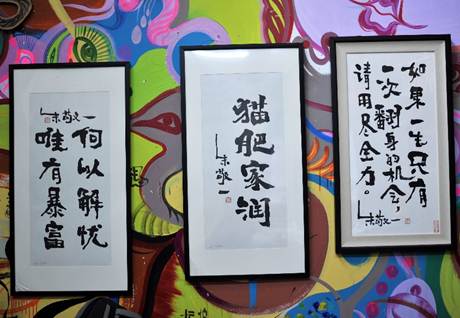 何以解忧
唯有暴富
朱敬一
猫肥家润
朱敬一
如果一生只有
一次翻身的机会，
请用尽全力。
朱敬一